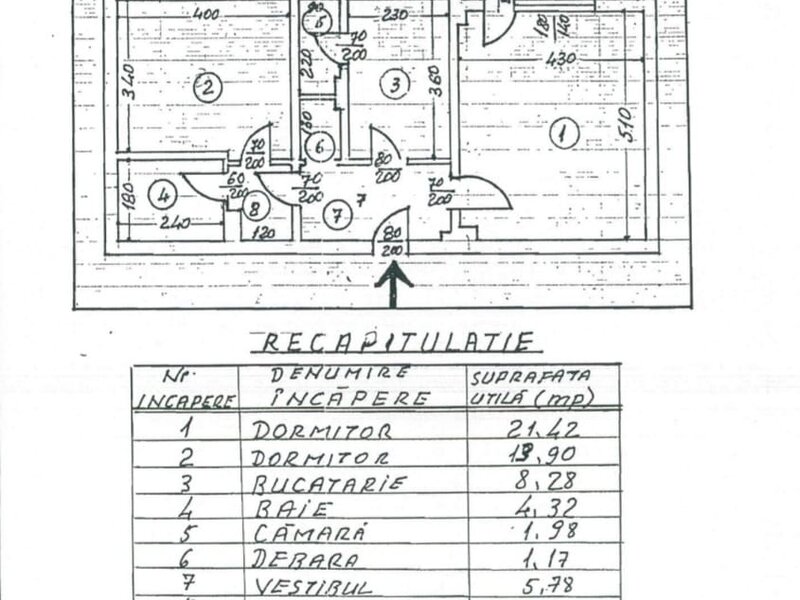 400
230
5
70
200
180
140
430
340
2
220
3
360
510
1
6
70
200
80
200
180
4
60
200
70
200
7
70
200
8
7
240
120
80
200
RECAPITULATIE
Nr. INCAPERE DENUMIRE ÎNCĂPERE SUPRAFATA UTILĂ (mp)
1 DORMITOR 21.42
2 DORMITOR 13,90
3 BUCATARIE 8,28
4 BAIE 4,32
5 CĂMARĂ 1,98
6 DEBARA 1,17
7 VESTIBUL 5,78